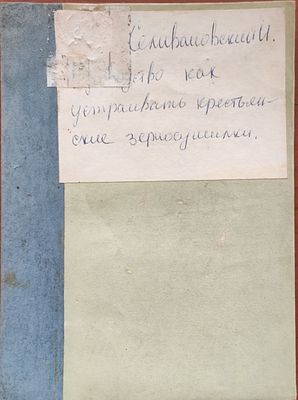 Селивановский И.
водство как
устраивать крестьян-
ские зерносушилки.